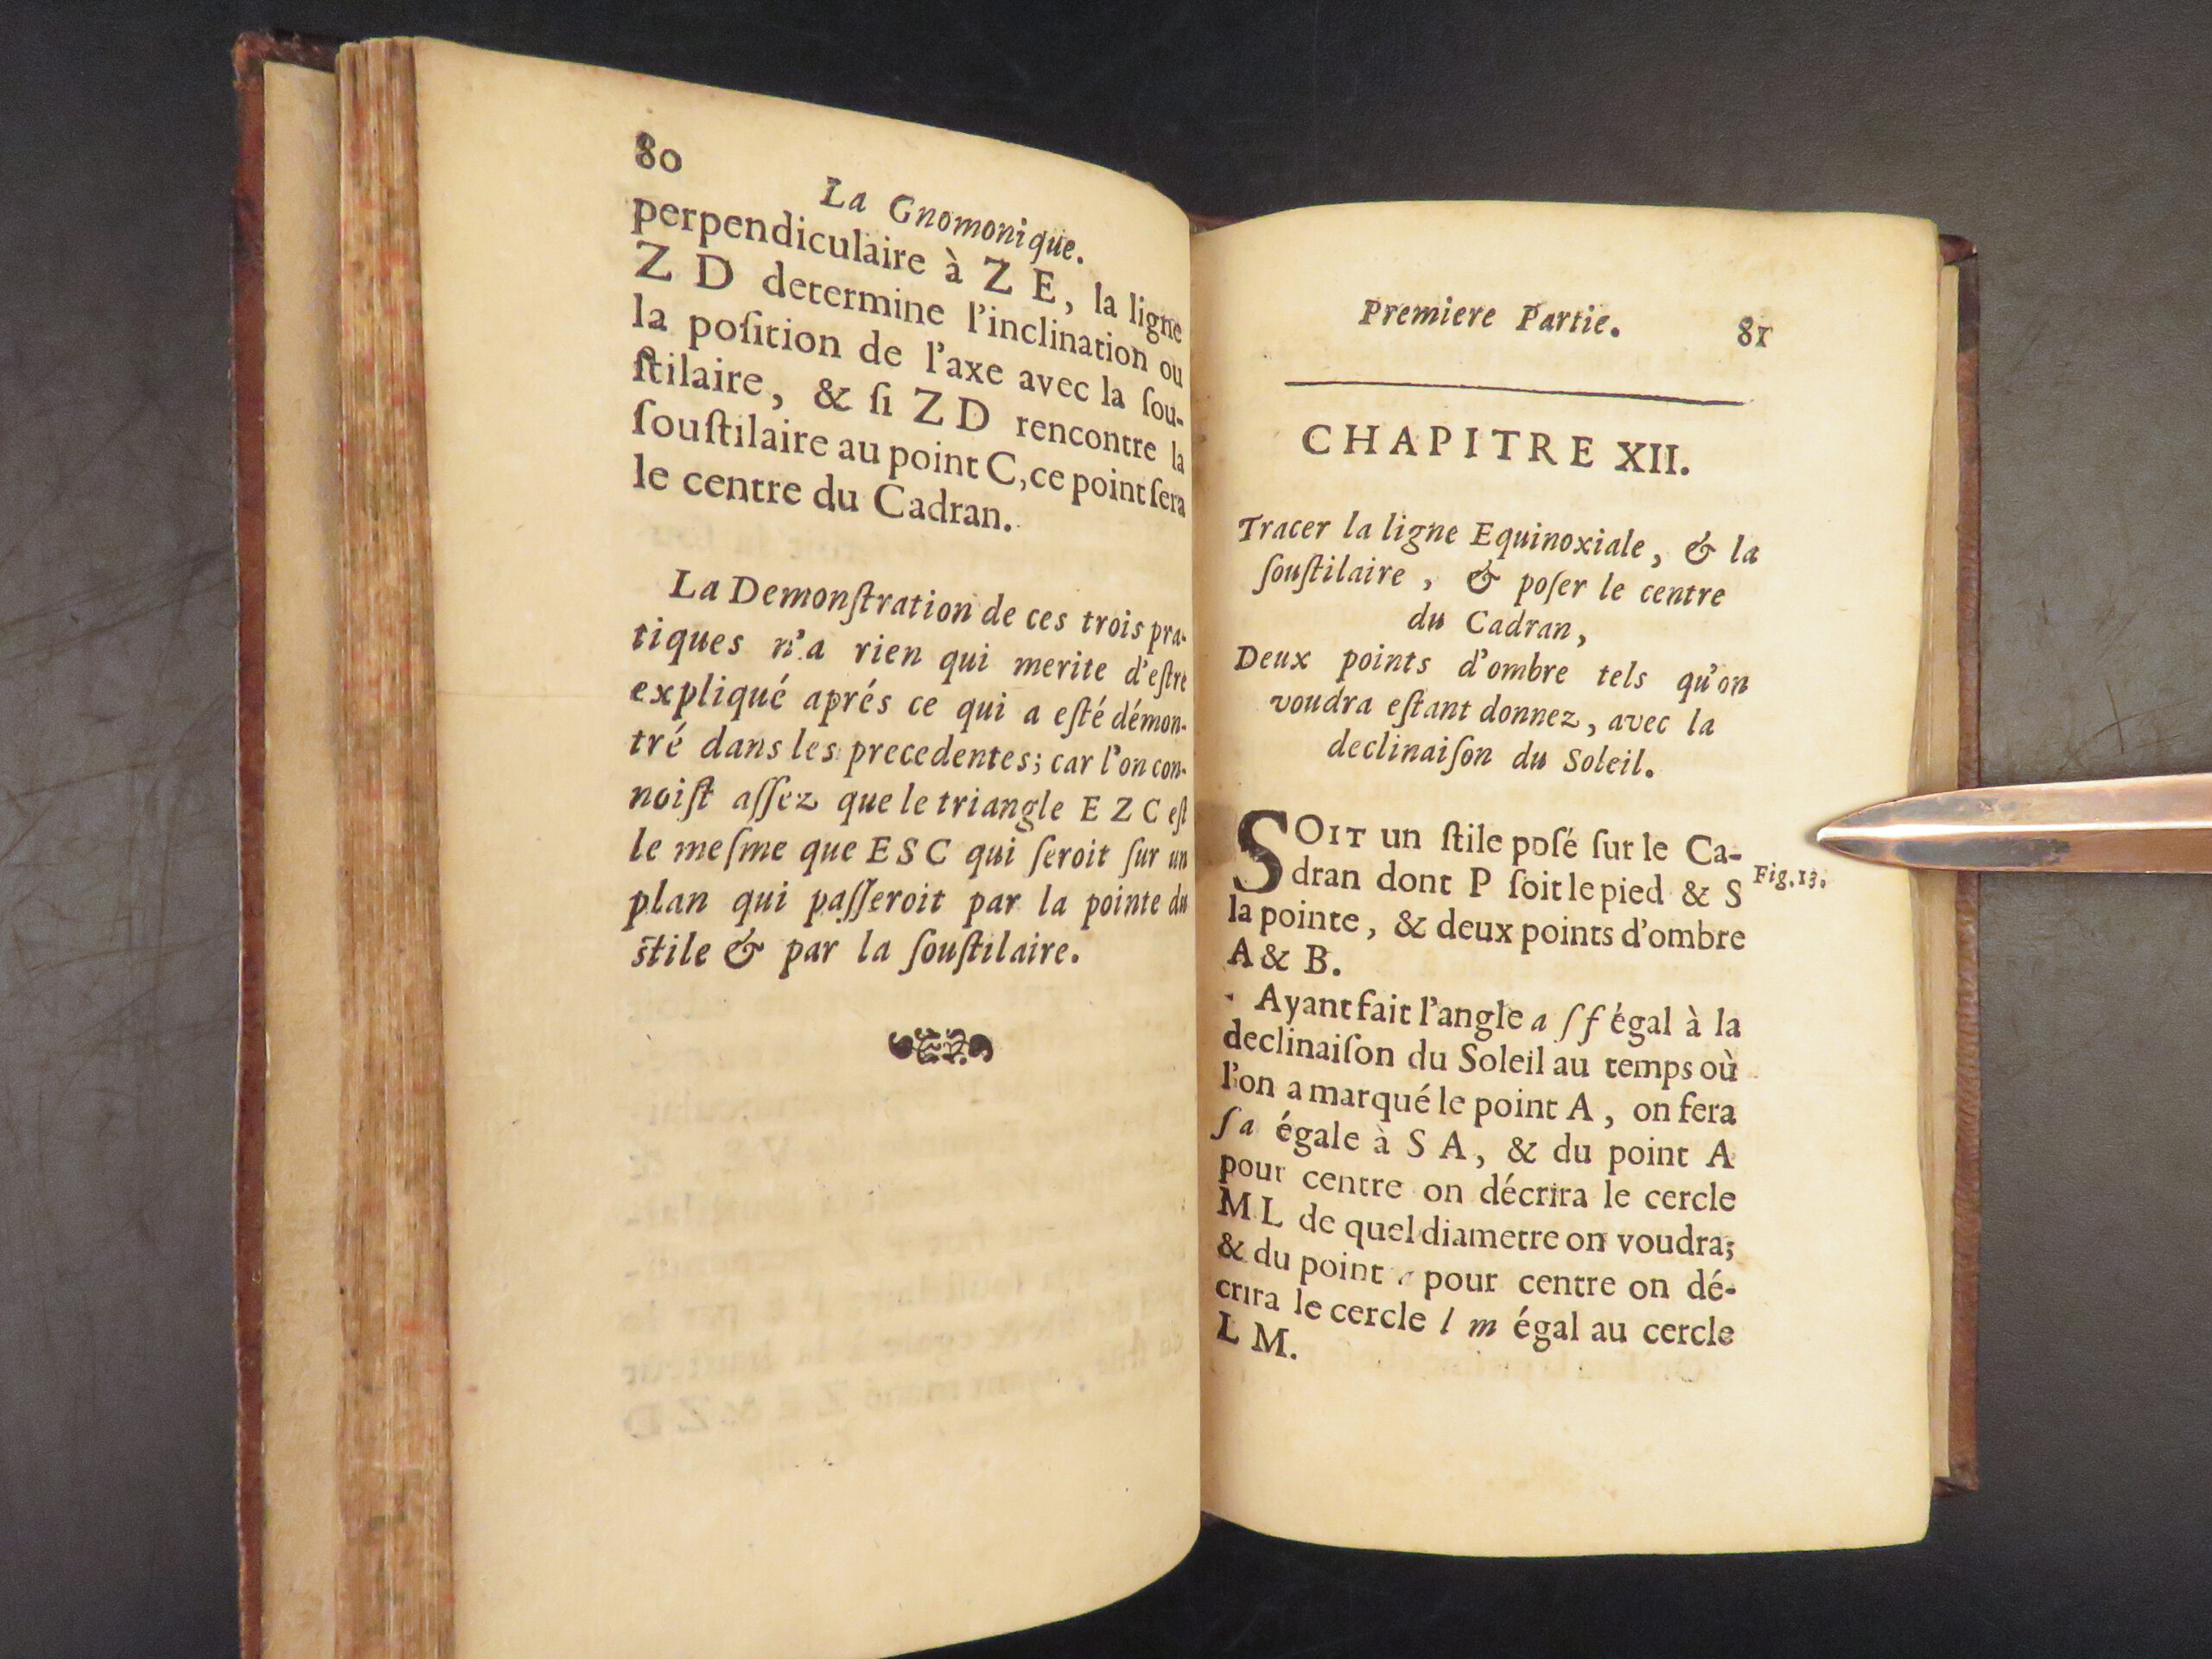 80
La Gnomonique.
perpendiculaire à Z E, la ligne
Z D determine l'inclination ou
la poſition de l'axe avec la ſou-
ſtilaire, & ſi Z D rencontre la
ſouſtilaire au point C, ce point ſera
le centre du Cadran.
La Demonſtration de ces trois pra-
tiques n'a rien qui merite d'eſtre
expliqué aprés ce qui a eſté démon-
tré dans les precedentes; car l'on con-
noiſt aſſez que le triangle E Z C eſt
le meſme que E S C qui ſeroit ſur un
plan qui paſſeroit par la pointe du
ſtile & par la ſouſtilaire.
Premiere Partie. 81
CHAPITRE XII.
Tracer la ligne Equinoxiale, & la
ſouſtilaire, & poſer le centre
du Cadran,
Deux points d'ombre tels qu'on
voudra eſtant donnez, avec la
declinaiſon du Soleil.
SOIT un ſtile poſé ſur le Ca-
dran dont P ſoit le pied & S
Fig. 13.
la pointe, & deux points d'ombre
A & B.
Ayant fait l'angle a ſ f égal à la
declinaiſon du Soleil au temps où
l'on a marqué le point A, on fera
ſ a égale à S A, & du point A
pour centre on décrira le cercle
M L de quel diametre on voudra;
& du point pour centre on dé-
crira le cercle l m égal au cercle
L M.